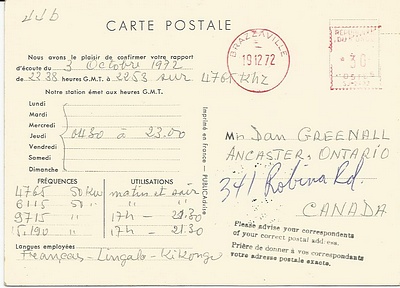 CARTE POSTALE
Nous avons le plaisir de confirmer votre rapport
d'écoute du 3 Octobre 1972
de 2238 heures G.M.T. à 2253 sur 4765 kHz
Notre station émet aux heures G.M.T.
Lundi
Mardi
Mercredi
Jeudi 0430 à 23.00
Vendredi
Samedi
Dimanche
FRÉQUENCES UTILISATIONS
4765 50 Kw matin et soir
6115 50 " "
9715 " 17H - 21.30
15.190 " 17H - 21.30
Langues employées
Français - Lingala - Kikongo
Imprimé en France — PUBLICAdidie
BRAZZAVILLE
19 12 72
Mr Dan GREENALL
ANCASTER, ONTARIO
341 Robina Rd.
CANADA
Please advise your correspondents
of your correct postal address.
Prière de donner à vos correspondants
votre adresse postale exacte.